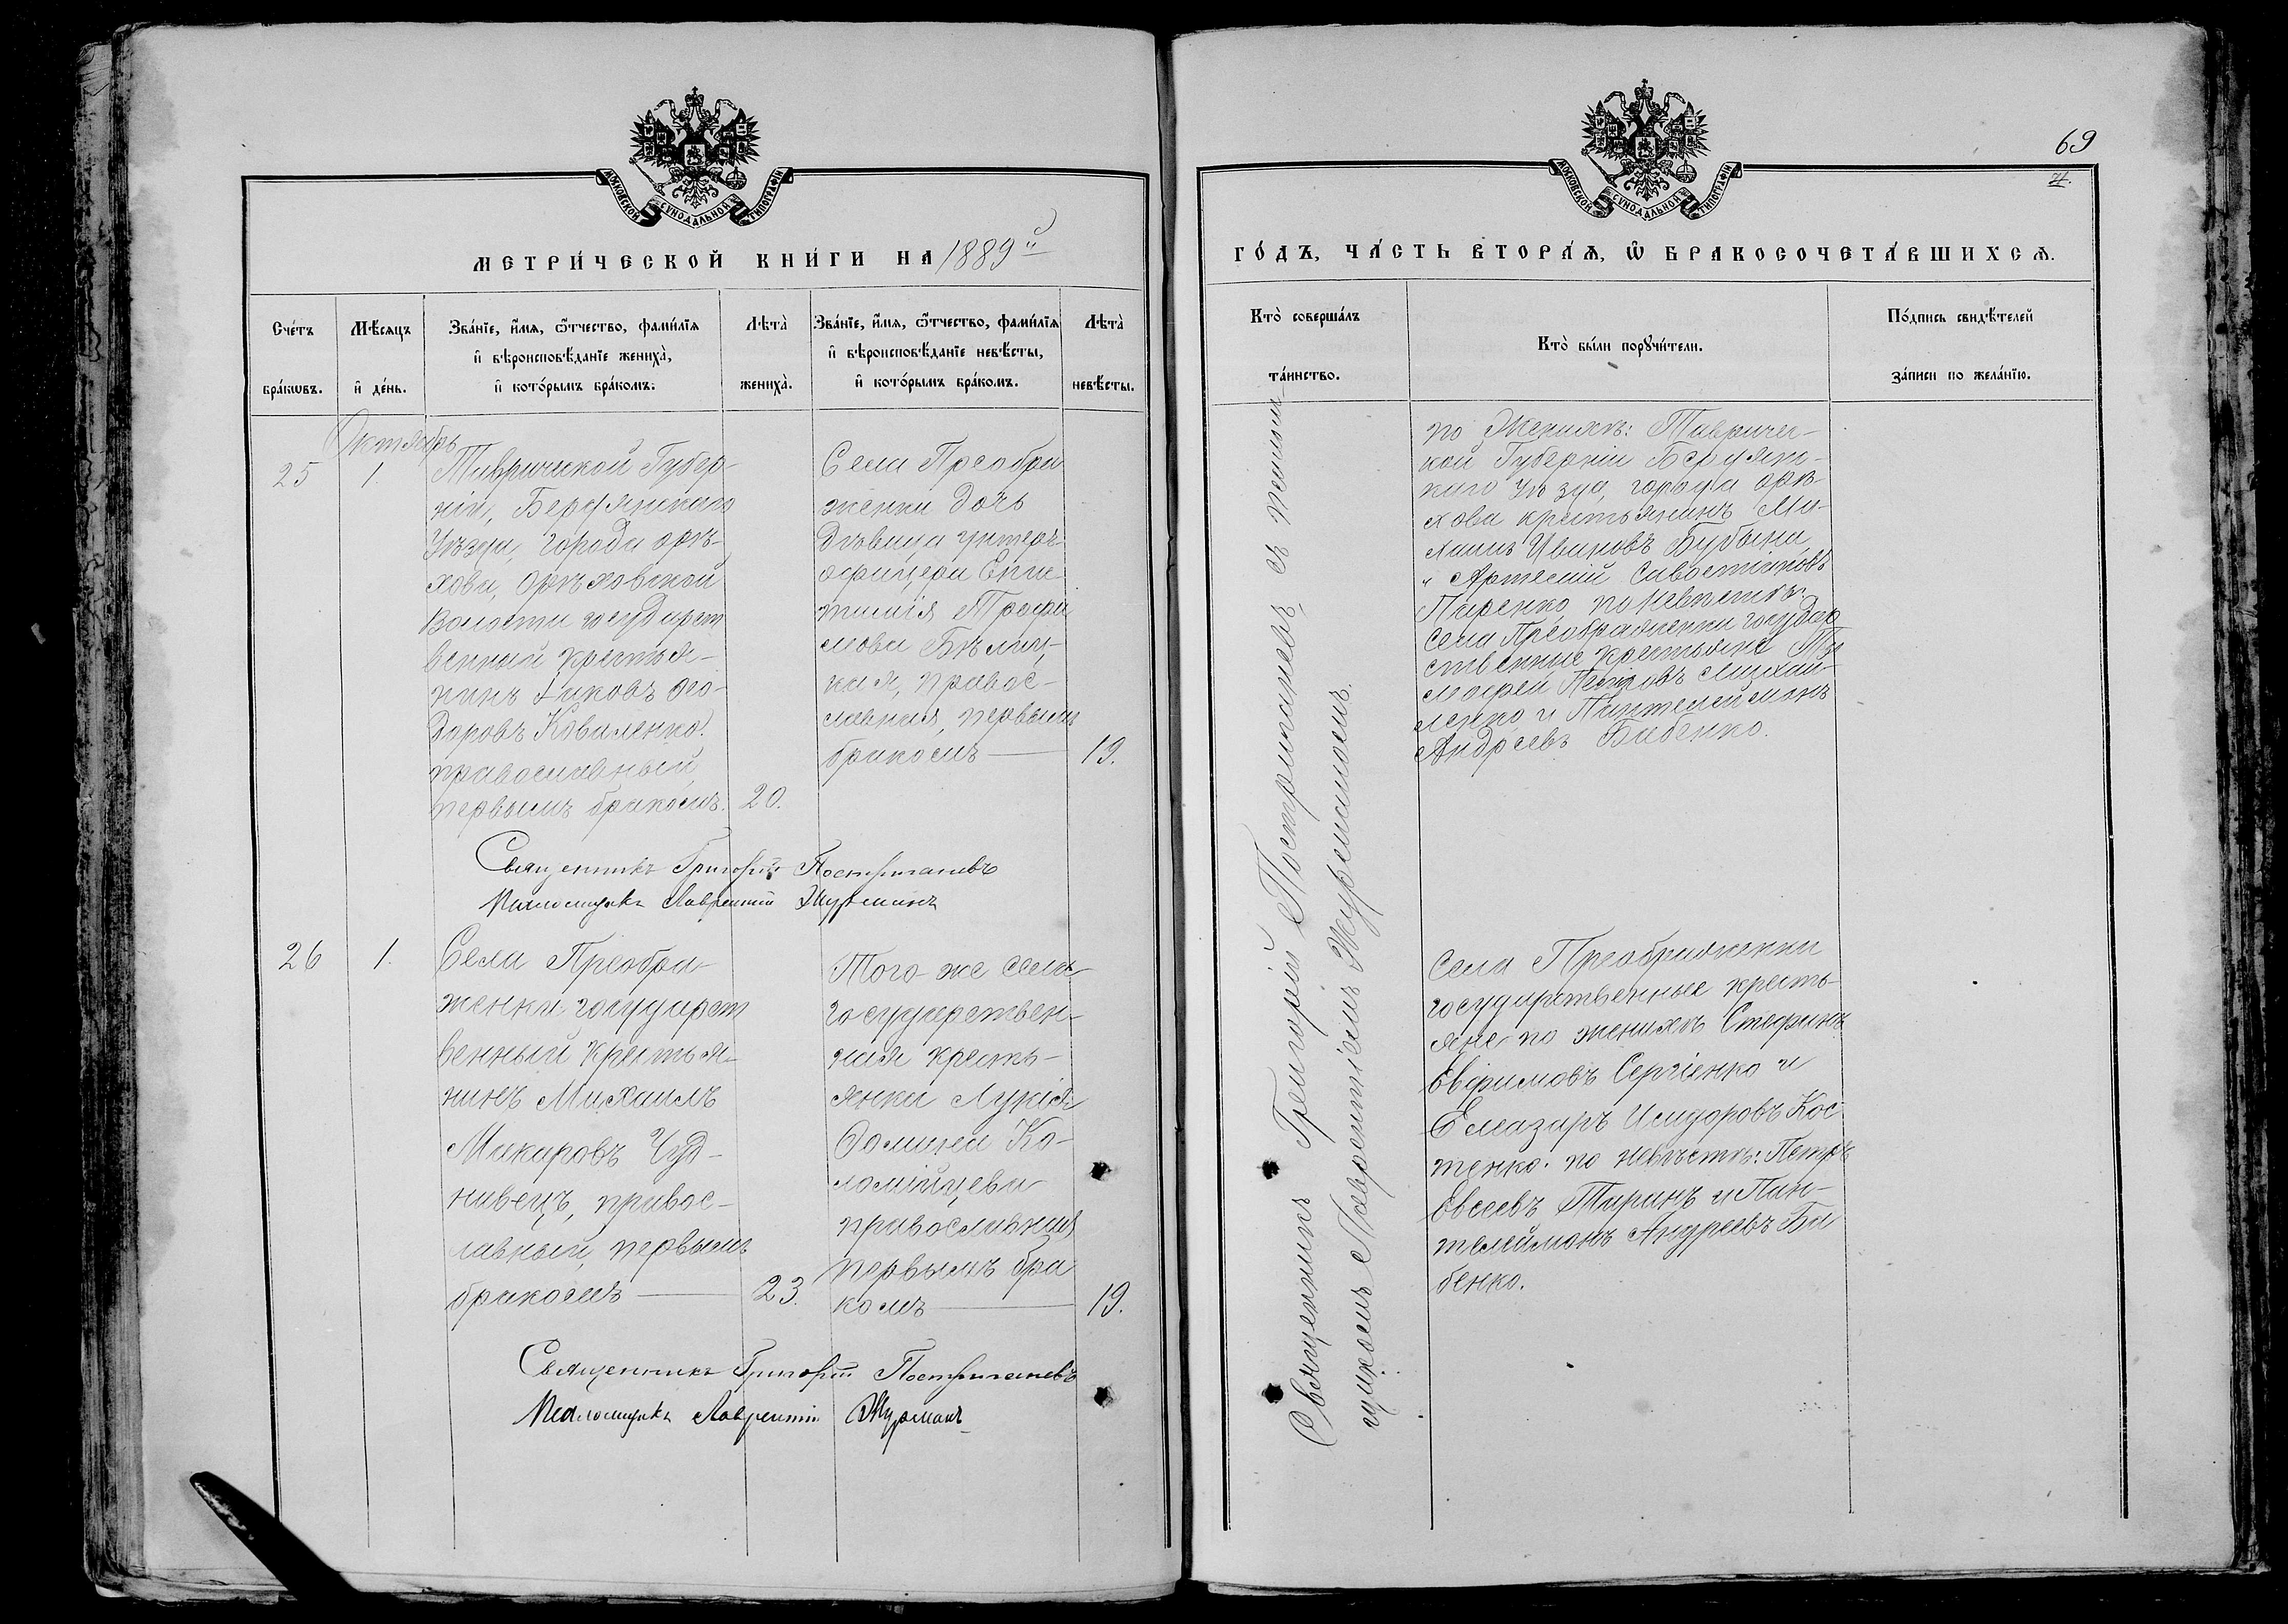 МОСКОВСКОЙ СѴНОДАЛЬНОЙ ТИПОГРАФІИ
МЕТРИ́ЧЕСКОЙ КНИ́ГИ НА 1889й
Сче́тъ бра́кѡвъ.
Мѣ́сяцъ и҆ де́нь.
Зва́нїе, и҆́мѧ, ѻ҆́тчество, фами́лїѧ
и҆ вѣроисповѣ́данїе жениха̀,
и҆ кото́рымъ бра́комъ.
Лѣта̀ жениха̀.
Зва́нїе, и҆́мѧ, ѻ҆́тчество, фами́лїѧ
и҆ вѣроисповѣ́данїе невѣ́сты,
и҆ кото́рымъ бра́комъ.
Лѣта̀ невѣ́сты.
Октябрь
25
1.
Таврической Губер-
ніи, Бердянскаго
Уѣзда, города Орѣ-
хова, Орѣховской
Волости государст
венный крестья-
нинъ Яковъ Ѳео-
доровъ Коваленко.
православный,
первымъ бракомъ.
20.
Села Преобра
женки дочь
дѣвица унтеръ-
офицера
Трофи
мова
кая, правос-
лавная, первымъ
бракомъ
19.
Священникъ Григорій Постригачевъ
Псаломщикъ Лаврентій Журманъ
26
1.
Села Преобра-
женки государст
венный крестья-
нинъ Михаилъ
Макаровъ Чуд-
нивецъ, правос-
лавный, первымъ
бракомъ
23.
Того-же села
государствен-
ная кресть-
янка Лукія
Ѳомина Ко-
ломійцева
православная
первымъ бра
комъ
19.
Священникъ Григорій Постригачевъ
Псаломщикъ Лаврентій Журманъ
69
МОСКОВСКОЙ СѴНОДАЛЬНОЙ ТИПОГРАФІИ
ГО́ДЪ, ЧА́СТЬ ВТОРА́Ѧ, Ѽ БРАКОСОЧЕТА́ВШИХСѦ.
Кто̀ соверша́лъ
та́инство.
Кто̀ бы́ли порꙋчи́тели.
По́дпись свидѣ́телей
за́писи по жела́нїю.
Священникъ Григорій Постригачевъ съ псалом-
щикомъ Лаврентіемъ Журманомъ.
по Женихѣ: Тавричес-
кой Губерніи Бердянс-
каго Уѣзда, города Орѣ-
хова крестьянинъ Ми-
хаилъ Ивановъ Бубына
и Артемій Савостіяновъ
Паренко, по невѣстѣ:
Села Преображенки государ
ственные крестьяне Ти
мофей Петровъ Михай-
ленко и Пантелеймонъ
Андреевъ Бабенко.
Села Преображенки
государственные кресть-
яне по женихѣ Стефанъ
Евфимовъ Сергіенко и
Елеазаръ Исидоровъ Кос
тенко. по невѣстѣ: Петръ
Евсеевъ Таранъ и Пан-
телеймонъ Андреевъ Ба
бенко.